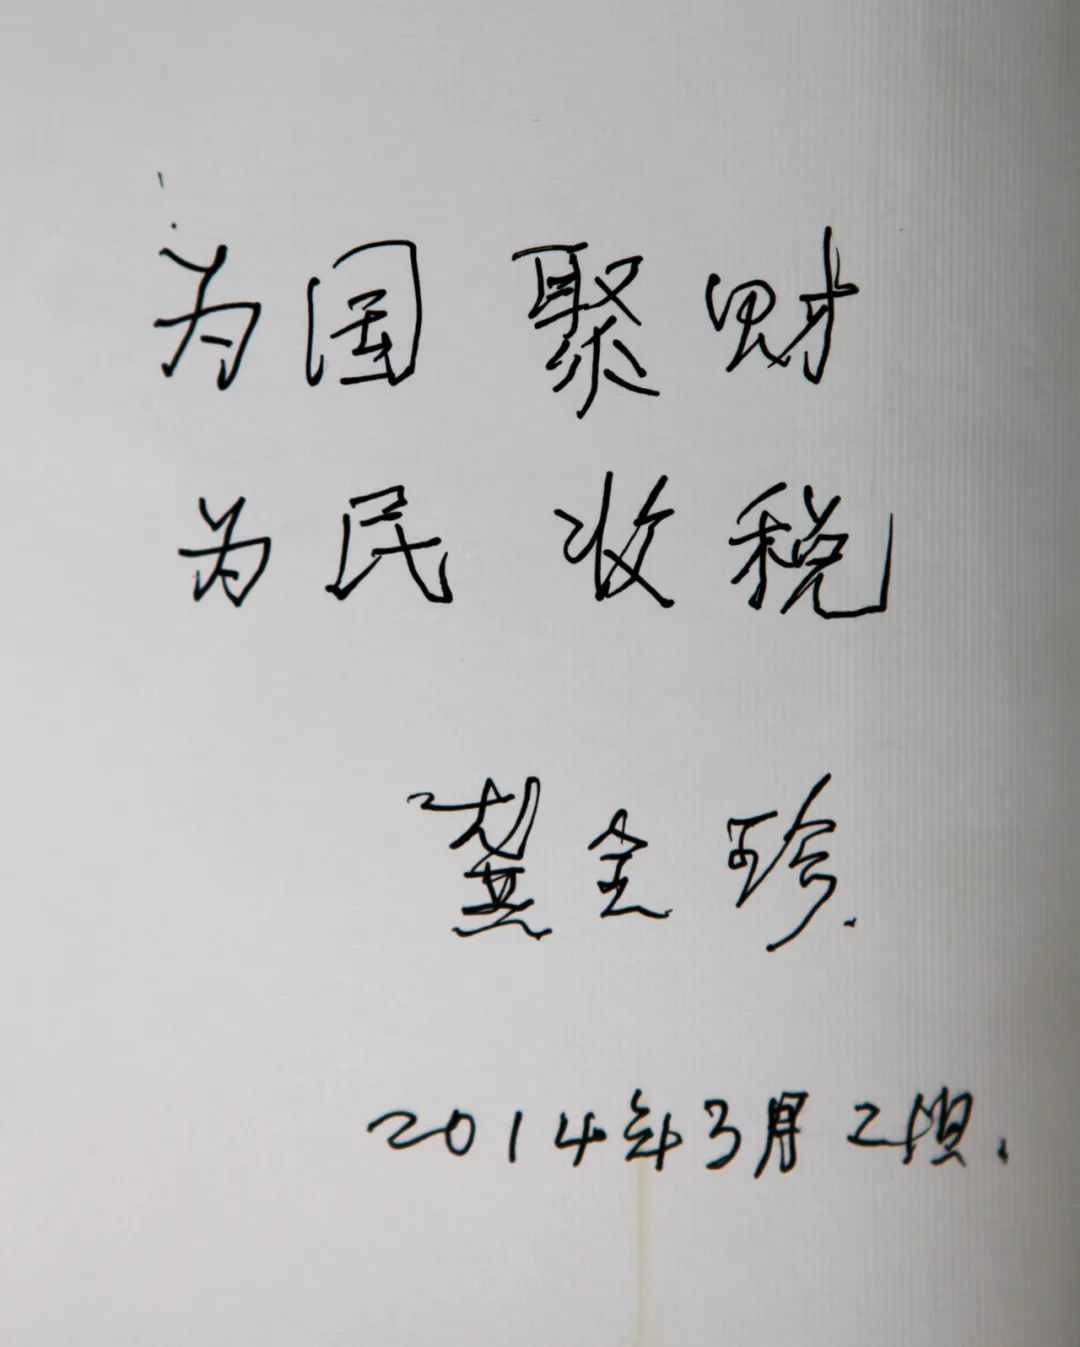 为国聚财
为民收税
龚全珍
2014年3月21日.